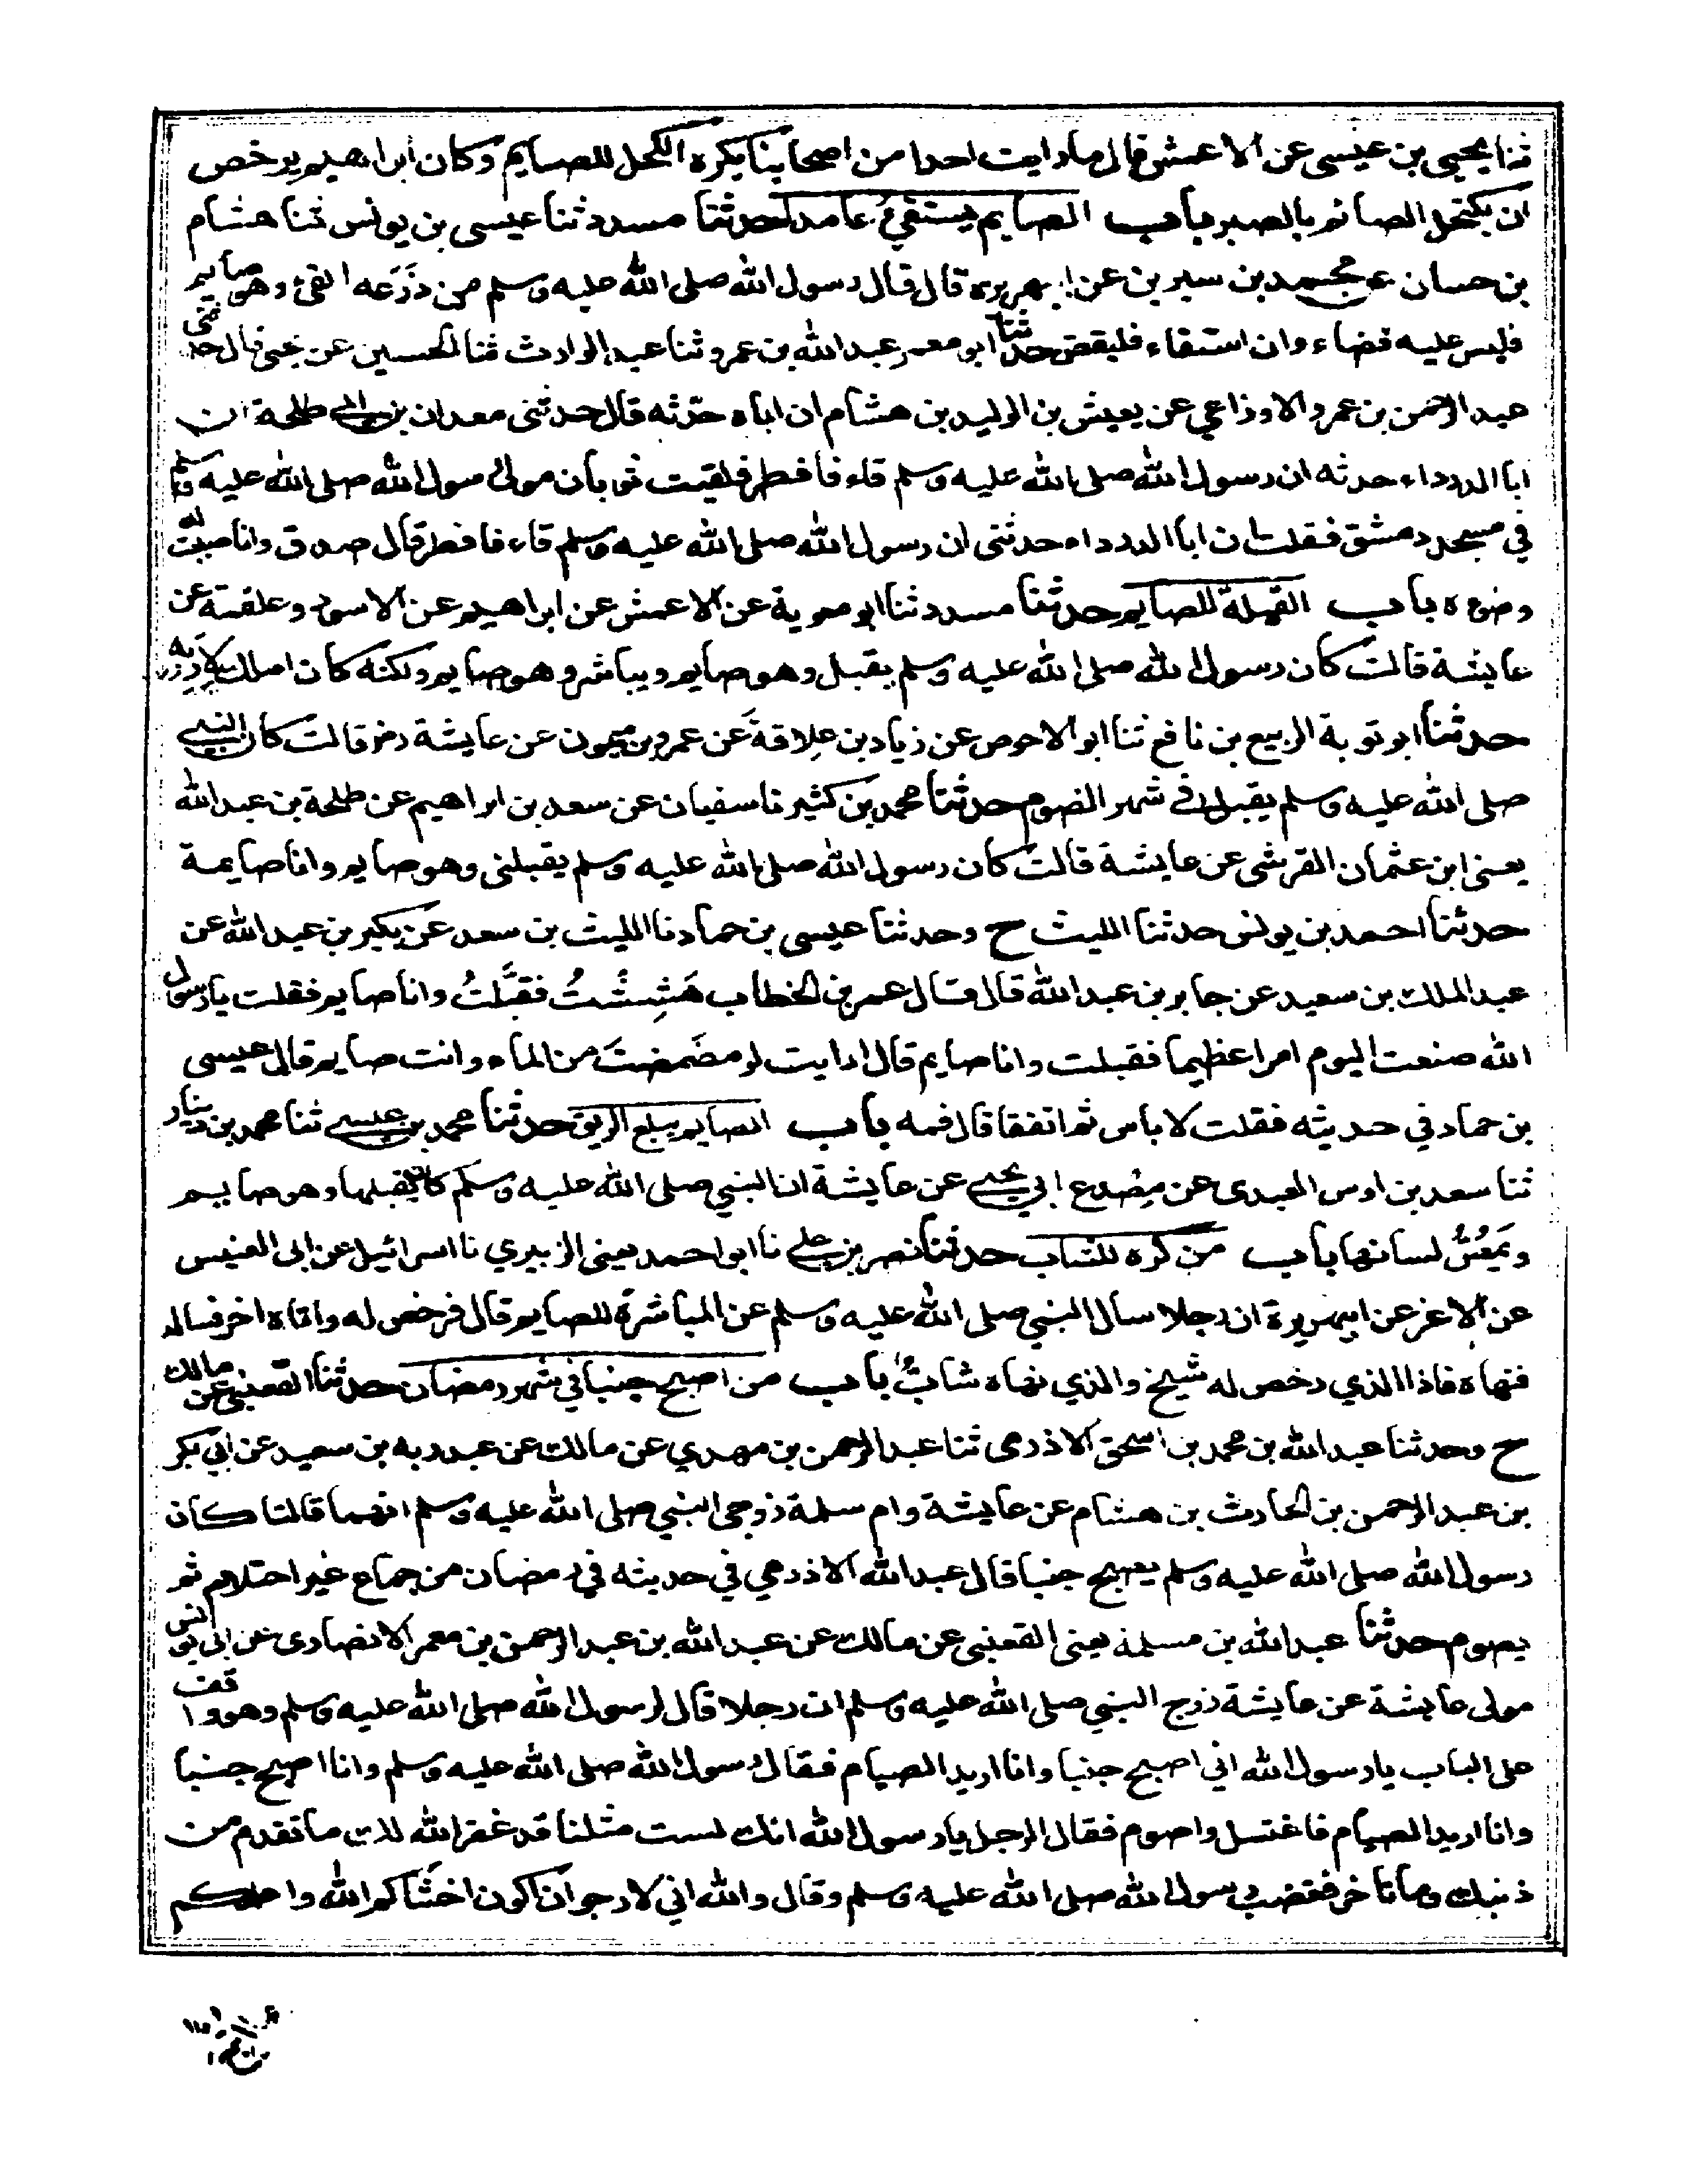 ثنا يحيى بن عيسى عن الاعمش قال ما رايت احدا من اصحابنا يكره الكحل للصايم وكان ابراهيم يرخص
ان يكتحل الصائم بالصبر باب الصايم يستقيء عامدا حدثنا مسدد ثنا عيسى بن يونس ثنا هشام
بن حسان عن محمد بن سيرين عن ابي هريرة قال قال رسول الله صلى الله عليه وسلم من ذَرَعَه القئ وهو صايم
فليس عليه قضاء وان استقاء فليقض حدثنا ابو معمر عبد الله بن عمرو ثنا عبد الوارث ثنا الحسين عن يحيى قال حدثنى
عبد الرحمن بن عمرو الاوزاعي عن يعيش بن الوليد بن هشام ان اباه حدّثه قال حدثنى معدان بن ابي طلحة ان
ابا الدرداء حدثه ان رسول الله صلى الله عليه وسلم قاء فافطر فلقيت ثوبان مولى رسول الله صلى الله عليه وسلم
في مسجد دمشق فقلت ان ابا الدرداء حدثنى ان رسول الله صلى الله عليه وسلم قاء فافطر قال صدق وانا صببت له
وضوءه باب القبلة للصايم حدثنا مسدد ثنا ابو معوية عن الاعمش عن ابراهيم عن الاسود وعلقمة عن
عايشة قالت كان رسول الله صلى الله عليه وسلم يقبل وهو صايم ويباشر وهو صايم ولكنه كان املك لاربه
حدثنا ابو توبة الربيع بن نافع ثنا ابو الاحوص عن زياد بن عِلاقةَ عن عمرو بن ميمون عن عايشة رضـ قالت كان النبي
صلى الله عليه وسلم يقبل في شهر الصوم حدثنا محمد بن كثير نا سفيان عن سعد بن ابراهيم عن طلحة بن عبد الله
يعنى ابن عثمان القرشى عن عايشة قالت كان رسول الله صلى الله عليه وسلم يقبلنى وهو صايم وانا صايمة
حدثنا احمد بن يونس حدثنا الليث ح وحدثنا عيسى بن حماد نا الليث بن سعد عن بكير بن عبد الله عن
عبد الملك بن سعيد عن جابر بن عبد الله قال قال عمر بن الخطاب هَشِشْتُ فقبَّلتُ وانا صايم فقلت يا رسول
الله صنعت اليوم امرا عظيما فقبلت وانا صايم قال ارايت لو مضَمضتَ من الماء وانت صايم قال عيسى
بن حماد في حديثه فقلت لا باس ثم اتفقا قال فمه باب الصايم يبلع الريق حدثنا محمد بن عيسى ثنا محمد بن دينار
ثنا سعد بن اوس العبدى عن مِصْدع ابي يحيى عن عايشة ان النبي صلى الله عليه وسلم كان يقبلها وهو صايم
ويَمُصُّ لسانها باب من كره للشاب حدثنا نصر بن علي نا ابو احمد يعنى الزبيري نا اسرائيل عن ابى العنبس
عن الاغر عن ابي هريرة ان رجلا سال النبي صلى الله عليه وسلم عن المباشرة للصايم قال فرخص له واتاه اخر فساله
فنهاه فاذا الذي رخص له شيخ والذي نهاه شابٌّ باب من اصبح جنبا في شهر رمضان حدثنا القعنبي عن مالك
ح وحدثنا عبد الله بن محمد بن اسحق الاذرمى ثنا عبد الرحمن بن مهدي عن مالك عن عبد ربه بن سعيد عن ابي بكر
بن عبد الرحمن بن الحارث بن هشام عن عايشة وام سلمة زوجى النبي صلى الله عليه وسلم انهما قالتا كان
رسول الله صلى الله عليه وسلم يصبح جنبا قال عبد الله الاذرمي في حديثه في رمضان من جماع غير احتلام ثم
يصوم حدثنا عبد الله بن مسلمة يعنى القعنبى عن مالك عن عبد الله بن عبد الرحمن بن معمر الانصارى عن ابى يونس
مولى عايشة عن عايشة زوج النبي صلى الله عليه وسلم ان رجلا قال لرسول الله صلى الله عليه وسلم وهو واقف
على الباب يا رسول الله اني اصبح جنبا وانا اريد الصيام فقال رسول الله صلى الله عليه وسلم وانا اصبح جنبا
وانا اريد الصيام فاغتسل واصوم فقال الرجل يا رسول الله انك لست مثلنا قد غفر الله لك ما تقدم من
ذنبك وما تاخر فغضب رسول الله صلى الله عليه وسلم وقال والله اني لارجو ان اكون اخشاكم لله واعلمكم